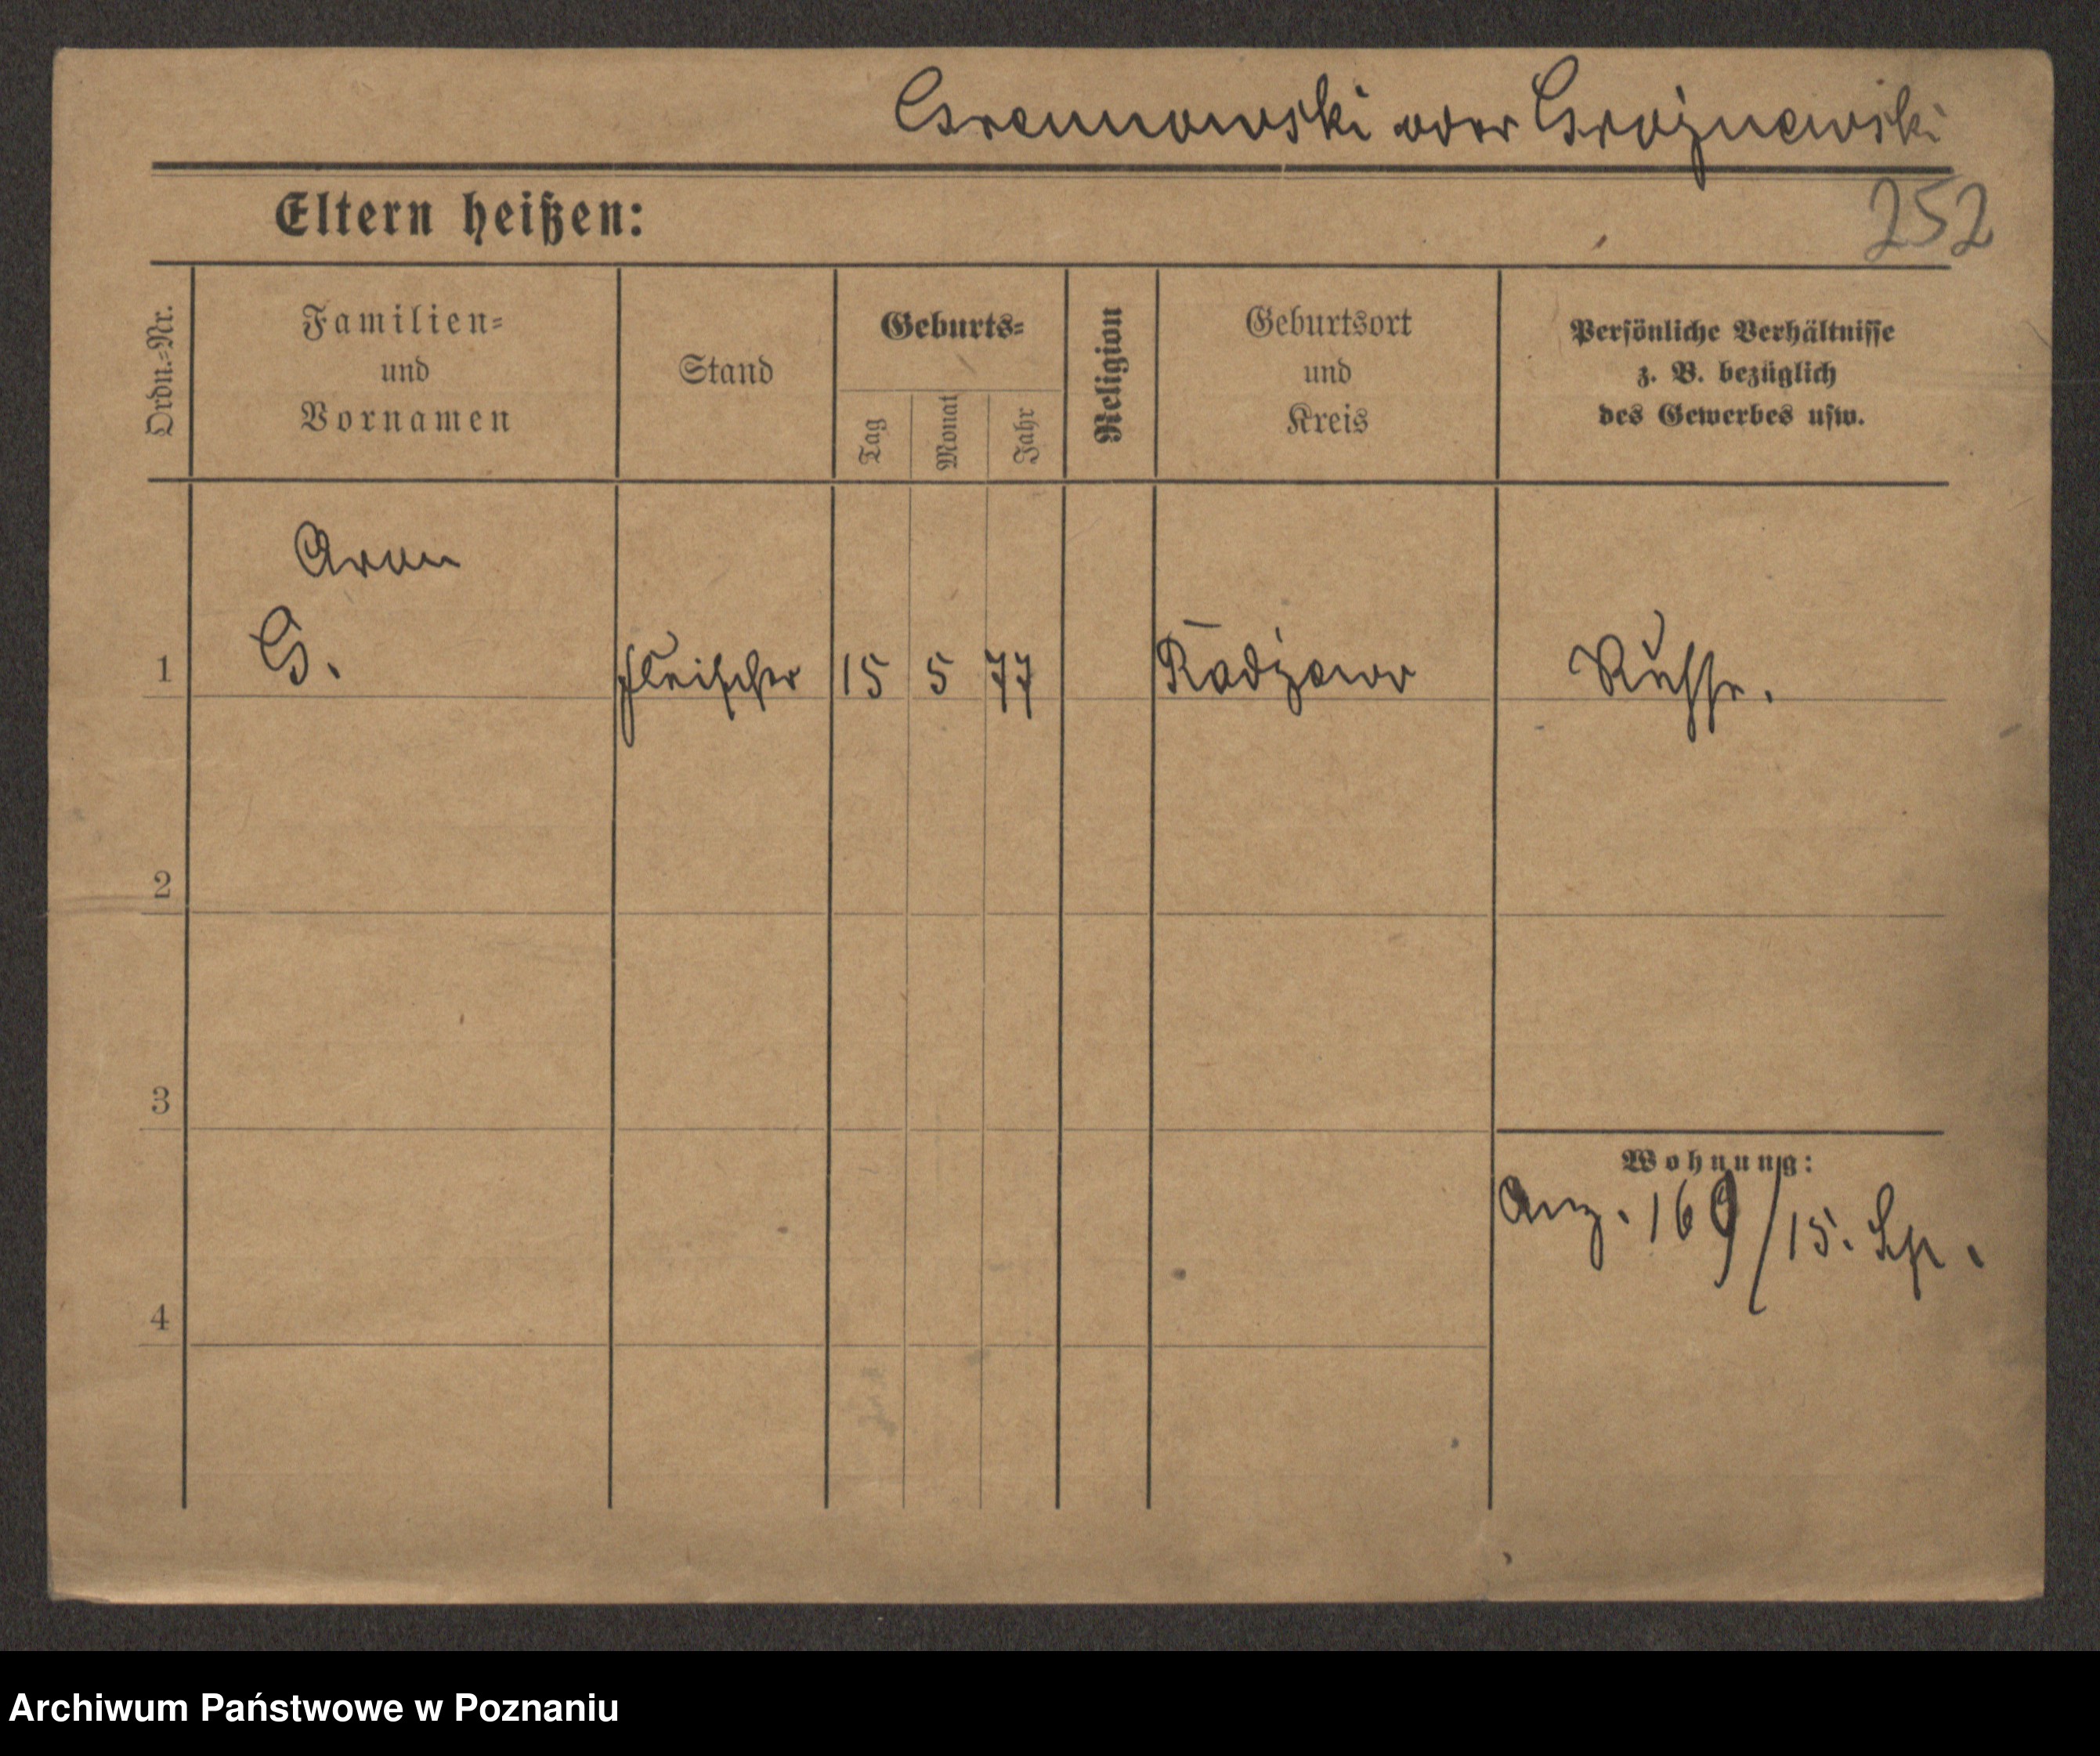 Grennowski oder Grożnewski
Eltern heißen:
252
Ordn.-Nr.
Familien-
und
Vornamen
Stand
Geburts-
Tag
Monat
Jahr
Religion
Geburtsort
und
Kreis
Persönliche Verhältnisse
z. B. bezüglich
des Gewerbes usw.
Aron
1 G. Fleischer 15 5 77 Radzewo Russe.
2
3
Wohnung:
Anz. 169/15. Sp.
4
Archiwum Państwowe w Poznaniu